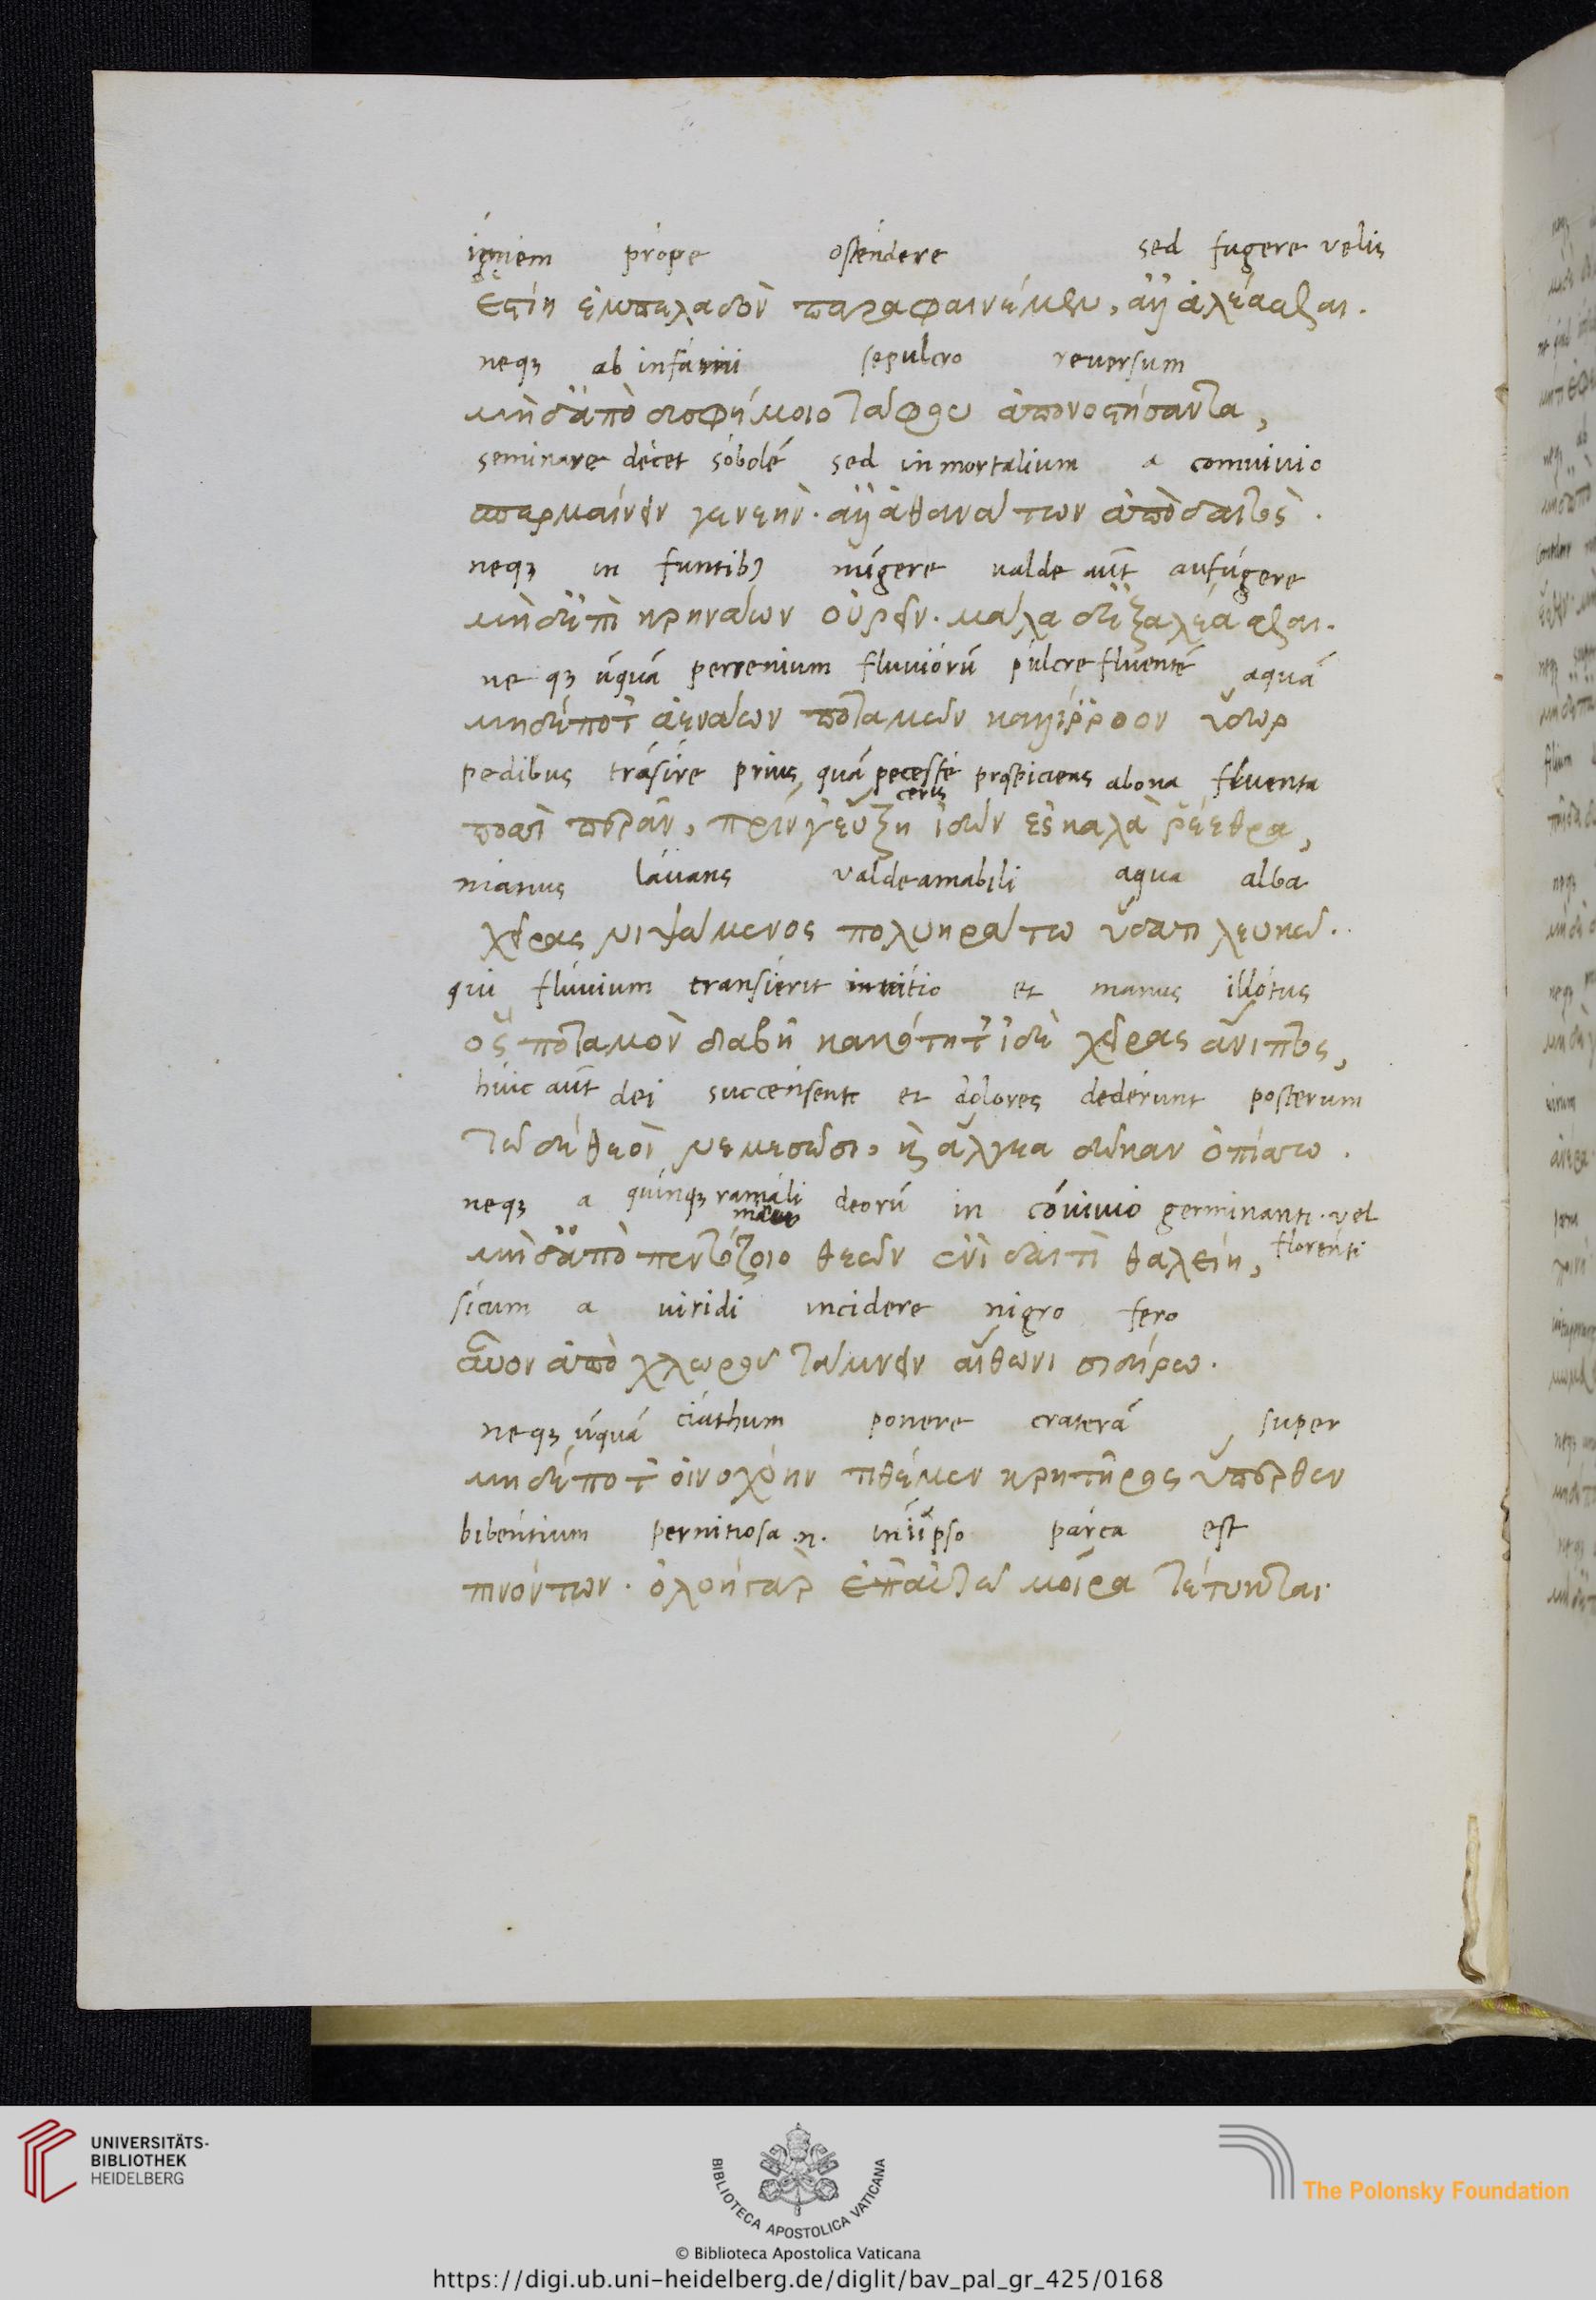 igniem prope ostendere sed fugere velis
ἑστίη ἐμπελαδὸν παραφαινέμεν, ἀλλ' ἀλέασθαι.
neqȝ ab infami sepulcro reversum
μὴ δ' ἀπὸ δυσφήμοιο τάφου ἀπονοστήσαντα,
seminare decet sobolē sed inmortalium a conuiuio
σπερμαίνειν γενεήν. ἀλλ' ἀθανάτων ἀπὸ δαιτός.
neqȝ in funtibȝ mīgere ualde aūt aufugere
μὴ δ' ἐπὶ κρηνάων οὐρεῖν. μάλα δ' ἐξαλέασθαι.
neqȝ ūquā perrenium fluuiorū pulcre fluentē aquā
μηδέποτ' ἀενάων ποταμῶν καλλίρροον ὕδωρ
pedibus trāsire prius quā precesse prospiciens abona fluenta
ceris
ποσὶ περᾶν, πρίν γ' εὔξῃ ἰδὼν ἐς καλὰ ῥέεθρα,
manus lauans valdeamabili aqua alba
χεῖρας νιψάμενος πολυηράτω ὕδατι λευκῶ.
qui fluuium transierit inuitio et manus illotus
ὃς ποταμὸν διαβῆ κακότητ' ἰδὲ χεῖρας ἄνιπτος,
huic aūt dei succensent et dolores dederunt posterum
τῶ δὲ θεοὶ νεμεσῶσι, καὶ ἄλγεα δῶκαν ὀπίσσω.
neqȝ a quinqȝ ramali deorū in cōuiuio germinanti. vel
florenti
μὴ δ' ἀπὸ πεντόζοιο θεῶν ἐνὶ δαιτὶ θαλείη,
sicum a uiridi incidere nigro fero
αὖον ἀπὸ χλωροῦ τάμνειν αἴθωνι σιδήρω.
neqȝ ūquā ciathum ponere craterā super
μηδέποτ' οἰνοχόην τιθέμεν κρητῆρος ὕπερθεν
bibentium pernitiosa .n. in iipso parca est
πινόντων. ὀλοὴ γὰρ ἐπ' αὐτῶ μοῖρα τέτυκται.
UNIVERSITÄTS-
BIBLIOTHEK
HEIDELBERG
BIBLIOTECA APOSTOLICA VATICANA
The Polonsky Foundation
© Biblioteca Apostolica Vaticana
https://digi.ub.uni-heidelberg.de/diglit/bav_pal_gr_425/0168